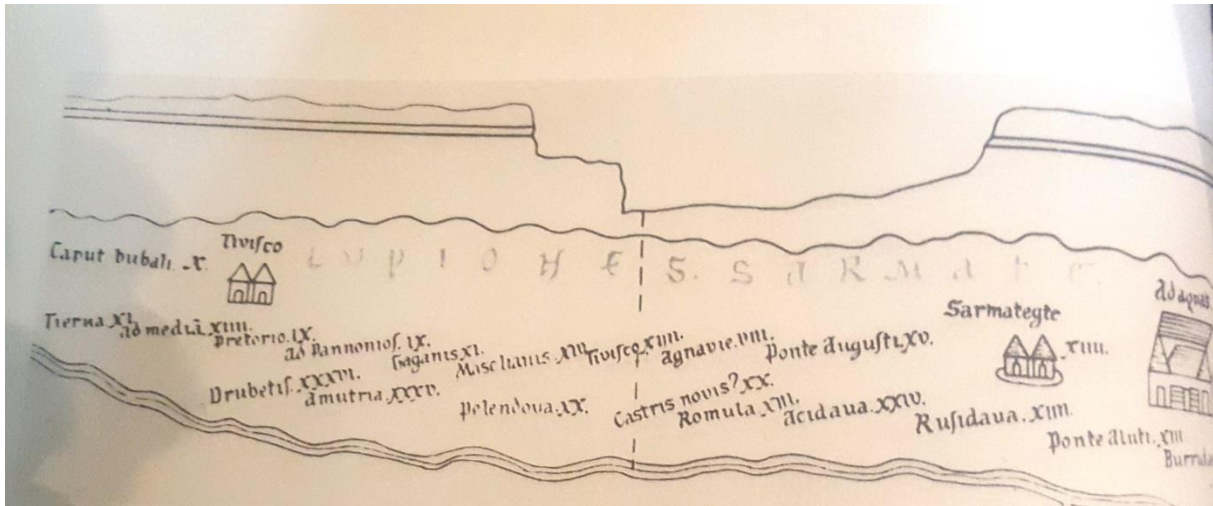 Tivisco
Caput bubali .X.
LUPIONES. SARMATE.
ad aquas
Tierna XI.
ad mediā. XIIII.
pretorio. IX.
ad pannonios. IX.
Gaganis XI.
Masclianis XIIII.
Tivisco. XIIII.
agnavie. VIII.
ponte augusti. XV.
Sarmategte
XIIII.
Drubetis. XXXVI.
amutria. XXXV.
pelendova. XX.
Castris novis? XX.
Romula XIII.
acidava. XXIV.
Rusidava. XIIII.
ponte aluti. XIII.